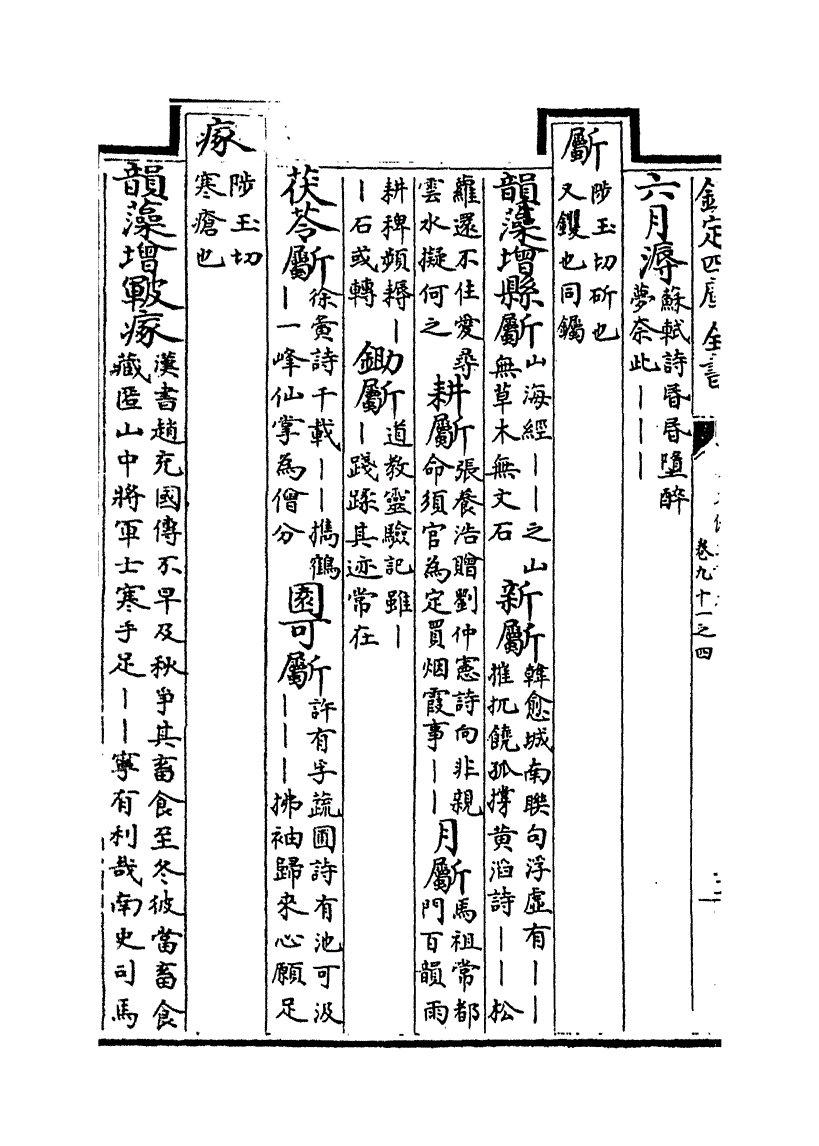 欽定四庫全書
卷九十一之四
六月溽蘇軾詩昏昏墮醉
夢奈此｜｜｜
斸陟玉切斫也
又钁也同钃
韻藻增縣斸山海經｜｜之山
無草木無文石
新斸韓愈城南聯句浮虛有｜｜
摧扤饒孤撑黄滔詩｜｜松
蘿還不住愛尋
雲水擬何之
耕斸張養浩贈劉仲憲詩向非親
命須官為定買烟霞事｜｜
月斸馬祖常都
門百韻雨
耕稗頻耨｜
｜石或轉
鋤斸道教靈驗記雖｜
｜踐蹂其迹常在
茯苓斸徐夤詩千載｜｜擕鶴
｜一峰仙掌為僧分
園可斸許有孚蔬圃詩有池可汲
｜｜｜拂袖歸來心願足
瘃陟玉切
寒瘡也
韻藻增皸瘃漢書趙充國傳不早及秋爭其畜食至冬彼當畜食
藏匿山中將軍士寒手足｜｜寧有利哉南史司馬